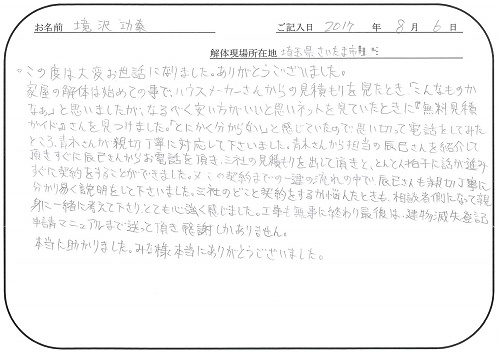 お名前 境沢 功泰 ご記入日 2017 年 8 月 6 日
解体現場所在地 埼玉県さいたま市
。この度は大変お世話になりました。ありがとうございました。
家屋の解体は始めての事で、ハウスメーカーさんからの見積もりを見たとき「こんなものか
なぁ」と思いましたが、なるべく安い方がいいと思いネットを見ていたときに『無料見積
ガイド』さんを見つけました。「とにかく分からない」と感じていたので思い切って電話をしてみた
ところ、青木さんが親切丁寧に対応して下さいました。青木さんから担当の辰巳さんを紹介して
頂きすぐに辰巳さんからお電話を頂き、三社の見積もりを出して頂きと、とんとん拍子に話が進み
すぐに契約をすることができました。この契約までの一連の流れの中で、辰巳さんも親切丁寧に
分かり易く説明をして下さいました。三社のどこと契約をするか悩んだときも、相談者側になって親
身に一緒に考えて下さり、とても心強く感じました。工事も無事に終わり最後は、建物滅失登記
申請マニュアルまで送って頂き感謝しかありません。
本当に助かりました。みな様本当にありがとうございました。